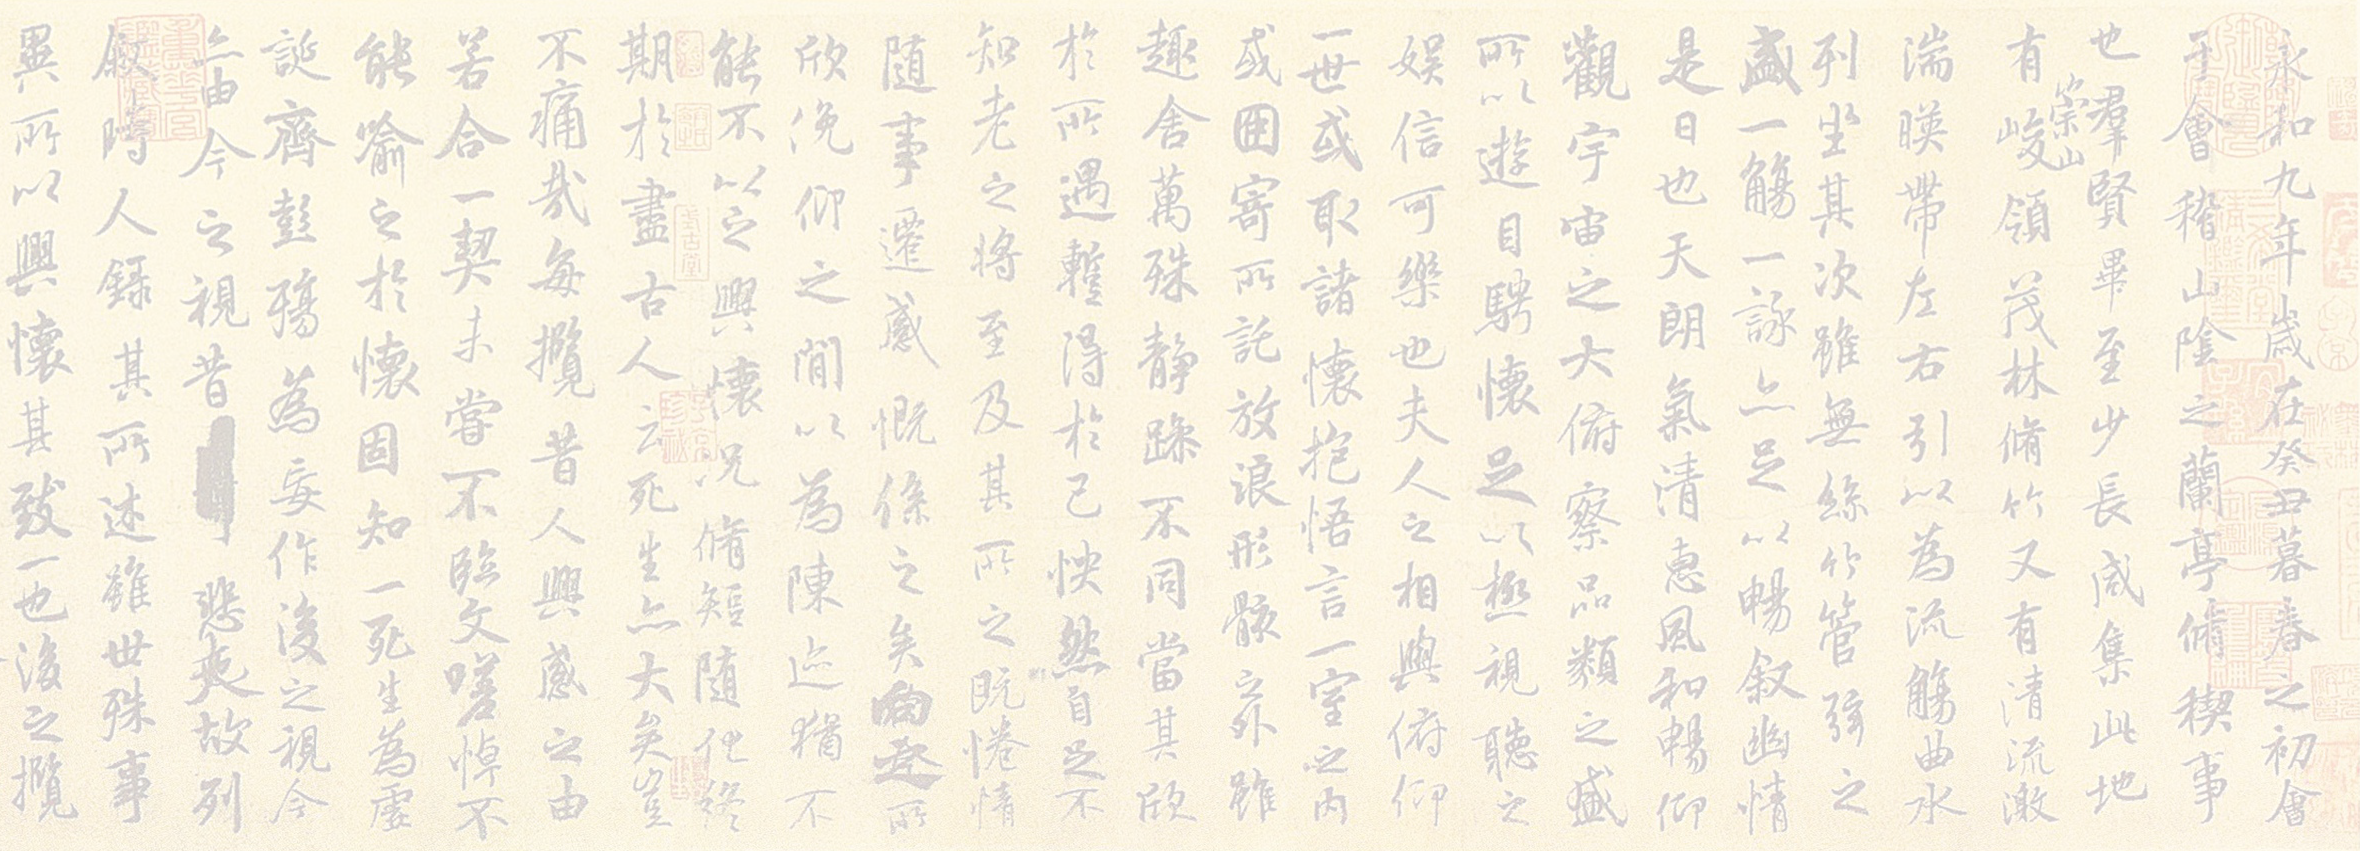 永和九年歲在癸丑暮春之初會
于會稽山陰之蘭亭脩禊事
也羣賢畢至少長咸集此地
有崇山峻領茂林脩竹又有清流激
湍暎帶左右引以為流觴曲水
列坐其次雖無絲竹管弦之
盛一觴一詠亦足以暢敘幽情
是日也天朗氣清惠風和暢仰
觀宇宙之大俯察品類之盛
所以遊目騁懷足以極視聽之
娛信可樂也夫人之相與俯仰
一世或取諸懷抱悟言一室之內
或因寄所託放浪形骸之外雖
趣舍萬殊靜躁不同當其欣
於所遇蹔得於己怏然自足不
知老之將至及其所之既惓情
隨事遷感慨係之矣向之所
欣俛仰之閒以為陳迹猶不
能不以之興懷況脩短隨化終
期於盡古人云死生亦大矣豈
不痛哉每攬昔人興感之由
若合一契未嘗不臨文嗟悼不
能喻之於懷固知一死生為虛
誕齊彭殤為妄作後之視今
亦由今之視昔悲夫故列
敘時人錄其所述雖世殊事
異所以興懷其致一也後之攬